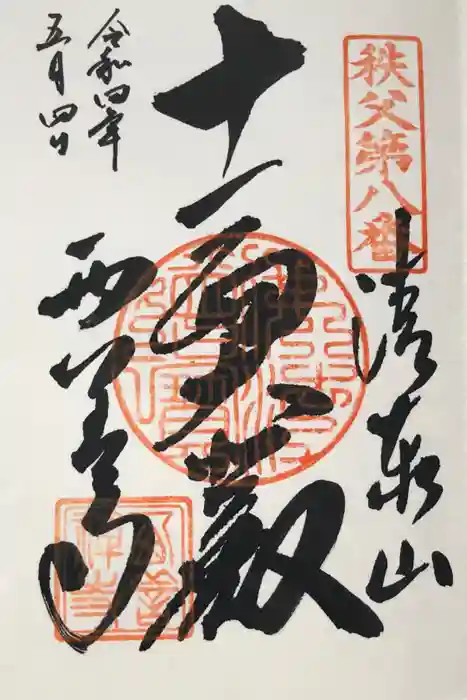 秩父第八番
清泰山
十一面
西善寺
令和四年
五月四日